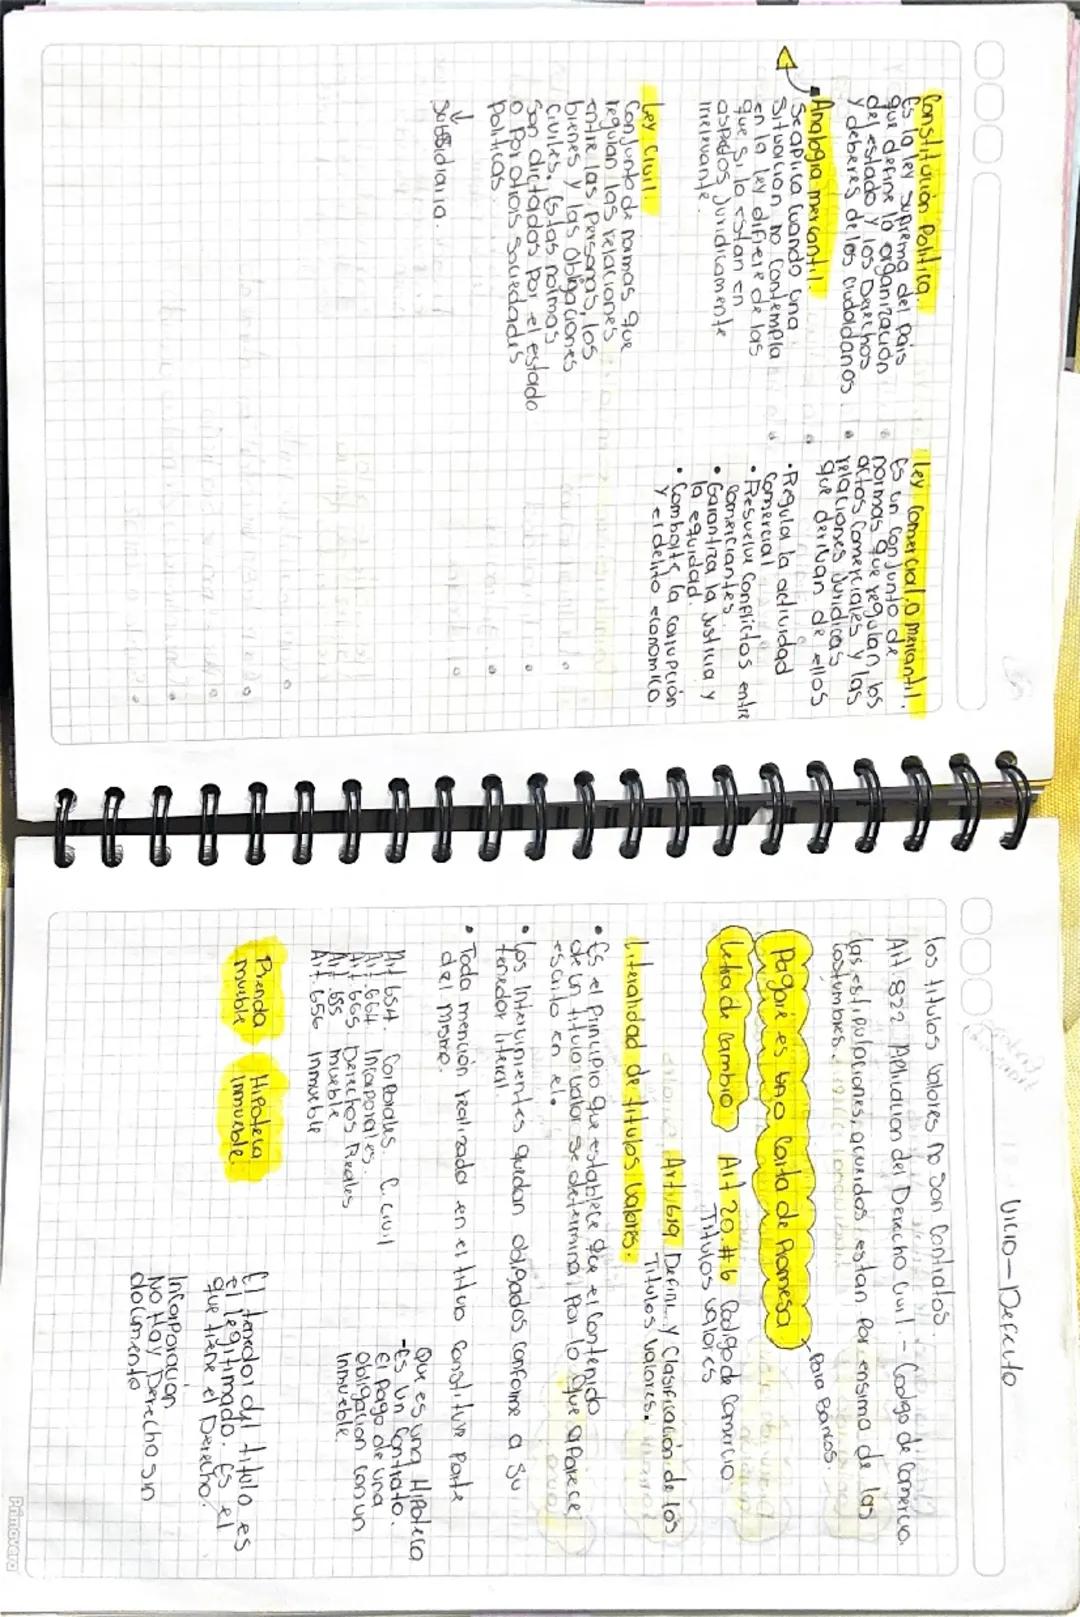 Constitución Política.
Es la ley suprema del país
que define la organización
del estado y los Derechos
y deberes de los ciudadanos
Analogía mercantil.
Se aplica cuando una
situación no contempla
en la ley difiere de las
que si lo estan en
aspectos Juridicamente
irrelevante.
Ley Civil.
Conjunto de normas que
regulan las relaciones
entre las personas, los
bienes y las obligaciones
civiles, Estas normas
son dictadas por el estado
o por otros sociedades
políticas.
Subsidiaria.
Ley Comercial o mercantil.
Es un conjunto de
normas que regulan los
actos comerciales y las
relaciones Juridicas
que derivan de ellos
• Regula la actividad
comercial
• Resuelve conflictos entre
comerciantes
• Garantiza la Justicia y
la equidad.
• Combate la corrupción
y el delito economico
Vicio-Defecto
los titulos valores no son contratos.
Art. 822 Aplicacion del Derecho Civil - Codigo de Comercio.
las estipulaciones, acuerdos estan por ensima de las
costumbres.
Pagare es una Carta de Promesa
Para Bancos.
letra de Cambio
Art 20. #6 Codigo de Comercio
Titulos valores
Art 619 Define y Clasificación de los
Titulos valores.
literalidad de titulos valores.
• Es el principio que establece que el contenido
de un titulo valor se determina por lo que aparece
escrito en el.
• los intervinientes quedan obligados conforme a su
tenedor literal.
• Toda mención realizada en el titulo constituye parte
del mismo.
Art 654. Corporales C. civil
Art 664 Incorporales.
Art 665 Derechos Reales
Art 655 mueble
Art. 656 inmueble
Que es una Hipoteca
-Es un contrato.
el pago de una
obligacion con un
inmueble.
Prenda
mueble
Hipoteca
inmueble.
El tenedor del titulo es
el legitimado. Es el
que tiene el Derecho.
Incorporación
No Hay Derecho sin
documento
Primavera